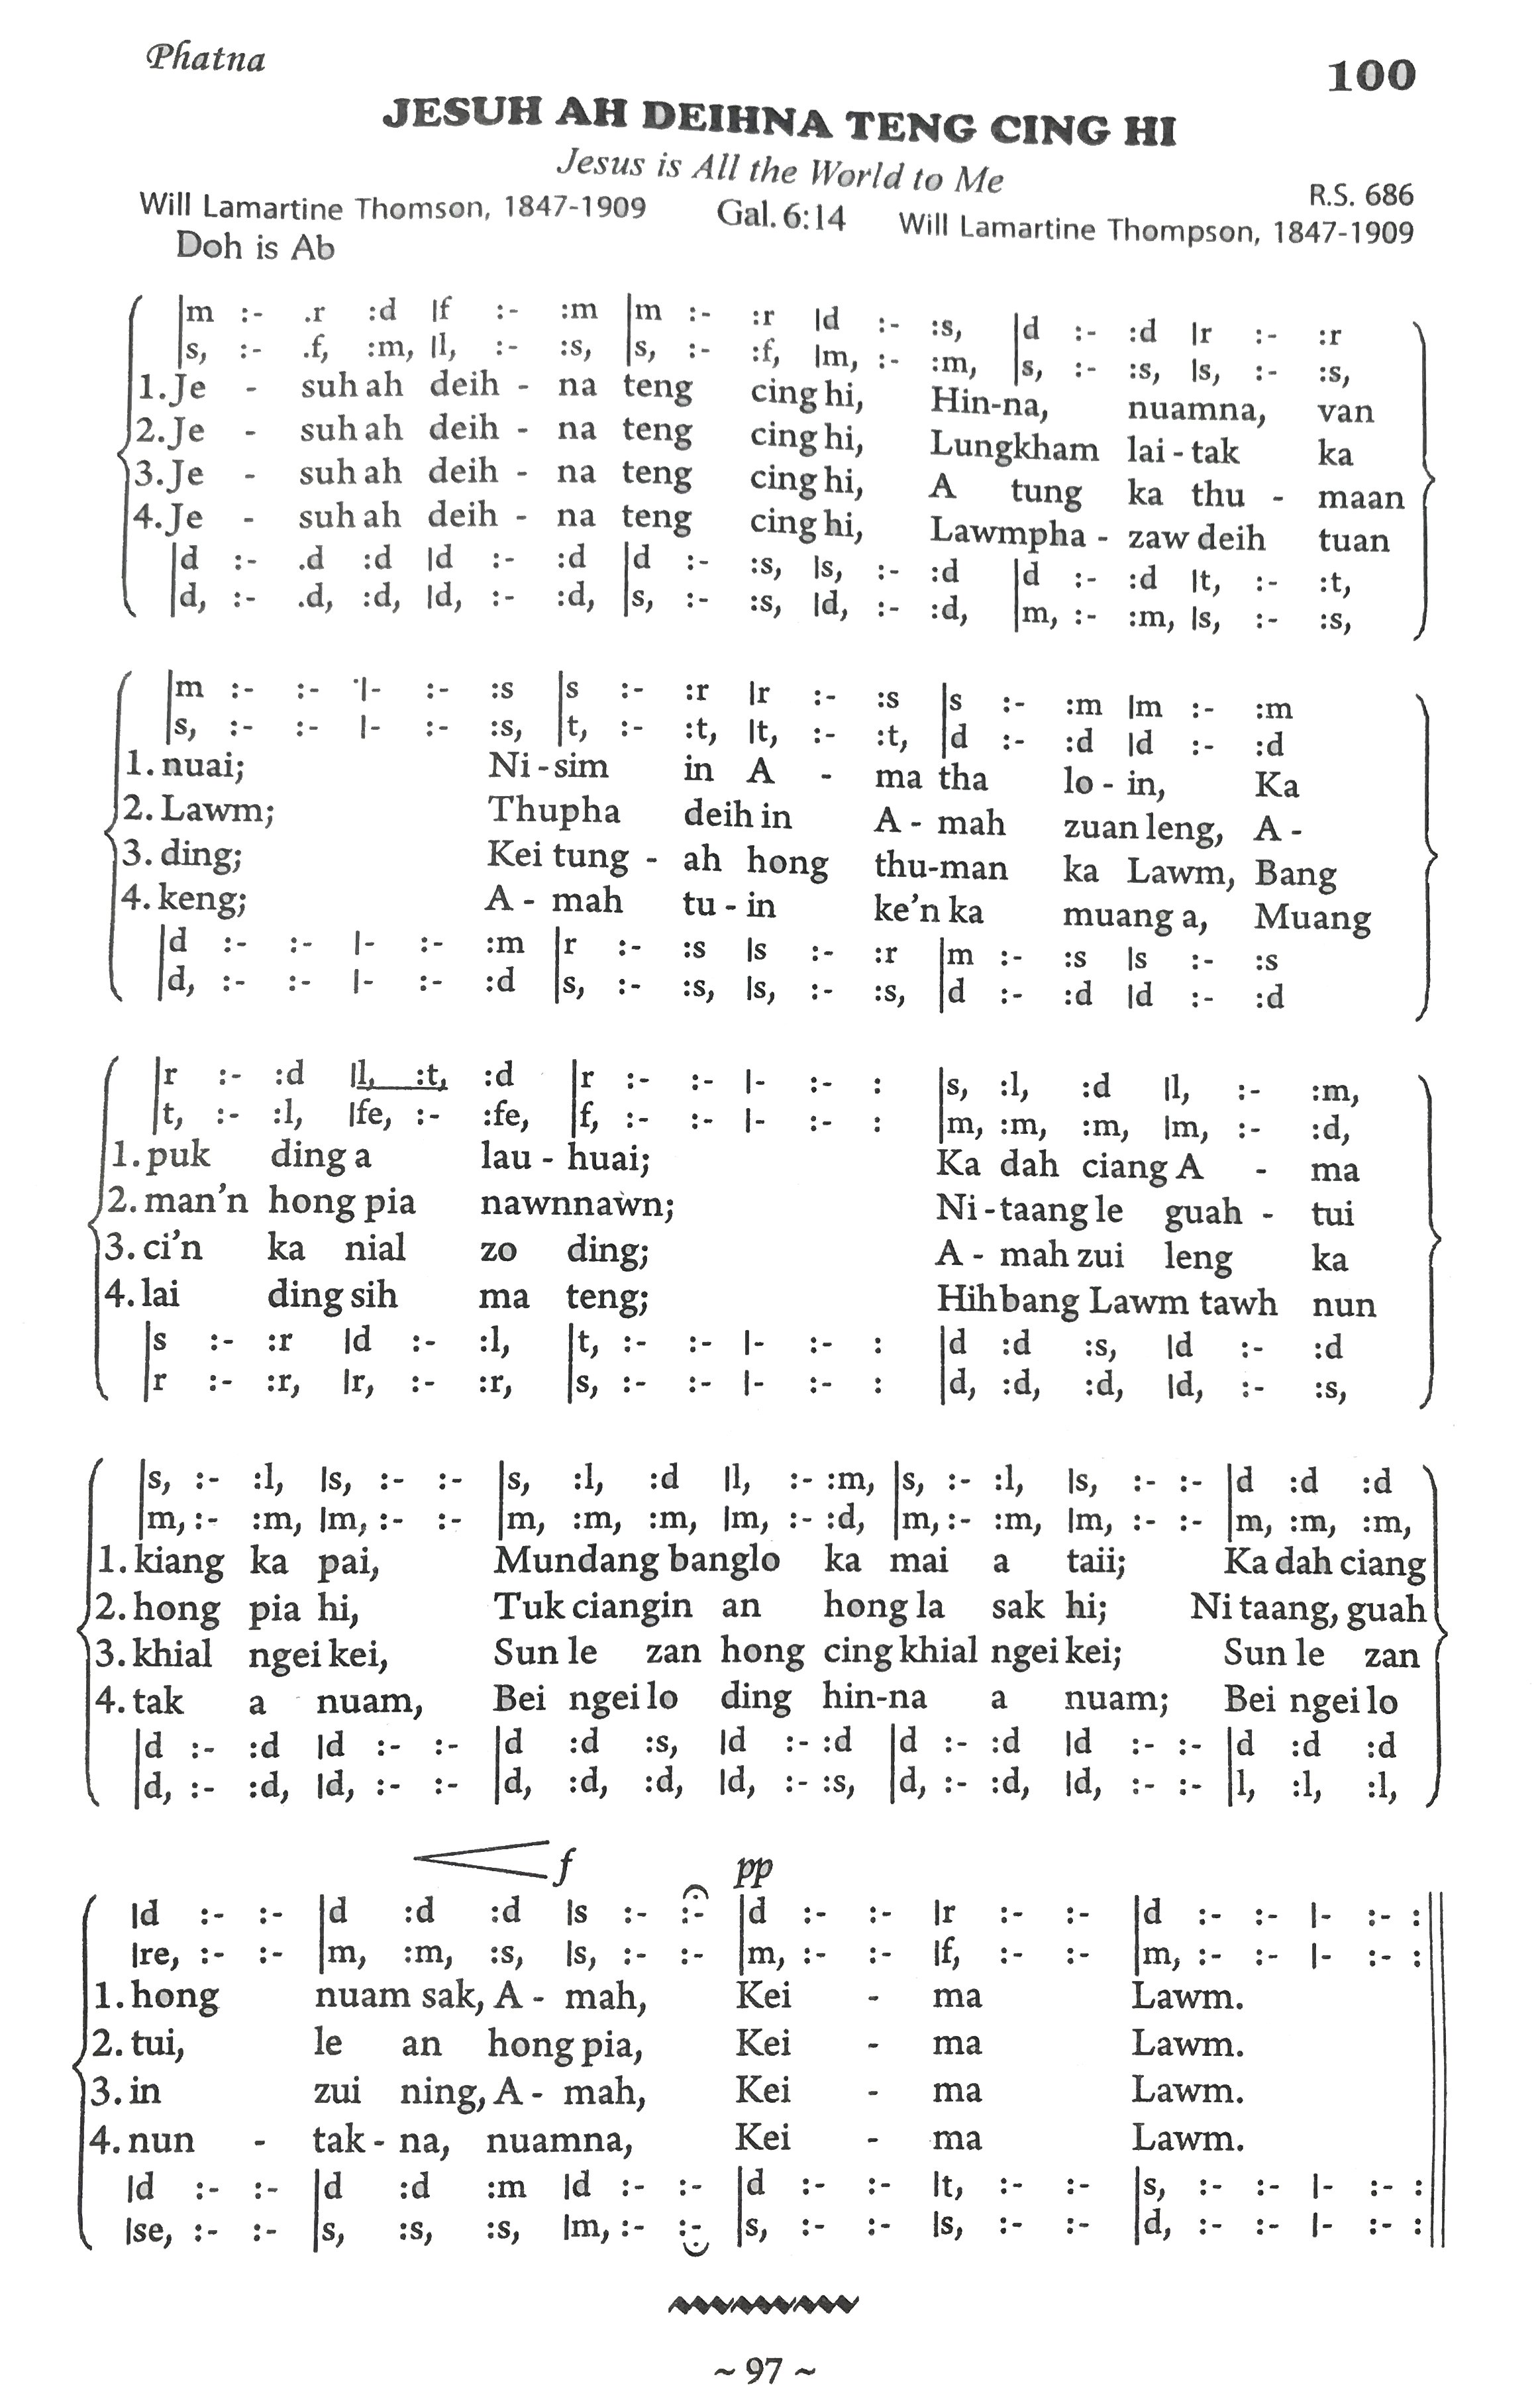 Phatna
100
JESUH AH DEIHNA TENG CING HI
Jesus is All the World to Me
R.S. 686
Will Lamartine Thomson, 1847-1909 Gal. 6:14 Will Lamartine Thompson, 1847-1909
Doh is Ab
|m :- .r :d |f :- :m |m :- :r |d :- :s, |d :- :d |r :- :r
|s, :- .f, :m, |l, :- :s, |s, :- :f, |m, :- :m, |s, :- :s, |s, :- :s,
1.Je - suh ah deih - na teng cing hi, Hin-na, nuamna, van
2.Je - suh ah deih - na teng cing hi, Lungkham lai - tak ka
3.Je - suh ah deih - na teng cing hi, A tung ka thu - maan
4.Je - suh ah deih - na teng cing hi, Lawmpha - zaw deih tuan
|d :- .d :d |d :- :d |d :- :s, |s, :- :d |d :- :d |t, :- :t,
|d, :- .d, :d, |d, :- :d, |s, :- :s, |d, :- :d, |m, :- :m, |s, :- :s,
|m :- :- |- :- :s |s :- :r |r :- :s |s :- :m |m :- :m
|s, :- :- |- :- :s, |t, :- :t, |t, :- :t, |d :- :d |d :- :d
1. nuai; Ni - sim in A - ma tha lo - in, Ka
2. Lawm; Thupha deih in A - mah zuan leng, A -
3. ding; Kei tung - ah hong thu-man ka Lawm, Bang
4. keng; A - mah tu - in ke'n ka muang a, Muang
|d :- :- |- :- :m |r :- :s |s :- :r |m :- :s |s :- :s
|d, :- :- |- :- :d |s, :- :s, |s, :- :s, |d :- :d |d :- :d
|r :- :d |l, :t, :d |r :- :- |- :- : |s, :l, :d |l, :- :m,
|t, :- :l, |fe, :- :fe, |f, :- :- |- :- : |m, :m, :m, |m, :- :d,
1. puk ding a lau - huai; Ka dah ciang A - ma
2. man'n hong pia nawnnawn; Ni - taang le guah - tui
3. ci'n ka nial zo ding; A - mah zui leng ka
4. lai ding sih ma teng; Hihbang Lawm tawh nun
|s :- :r |d :- :l, |t, :- :- |- :- : |d :d :s, |d :- :d
|r :- :r, |r, :- :r, |s, :- :- |- :- : |d, :d, :d, |d, :- :s,
|s, :- :l, |s, :- :- |s, :l, :d |l, :- :m, |s, :- :l, |s, :- :- |d :d :d
|m, :- :m, |m, :- :- |m, :m, :m, |m, :- :d, |m, :- :m, |m, :- :- |m, :m, :m,
1. kiang ka pai, Mundang banglo ka mai a taii; Ka dah ciang
2. hong pia hi, Tuk ciangin an hong la sak hi; Ni taang, guah
3. khial ngei kei, Sun le zan hong cing khial ngei kei; Sun le zan
4. tak a nuam, Bei ngei lo ding hin-na a nuam; Bei ngei lo
|d :- :d |d :- :- |d :d :s, |d :- :d |d :- :d |d :- :- |d :d :d
|d, :- :d, |d, :- :- |d, :d, :d, |d, :- :s, |d, :- :d, |d, :- :- |l, :l, :l,
f pp
|d :- :- |d :d :d |s :- :- |d :- :- |r :- :- |d :- :- |- :- :
|re, :- :- |m, :m, :s, |s, :- :- |m, :- :- |f, :- :- |m, :- :- |- :- :
1. hong nuam sak, A - mah, Kei - ma Lawm.
2. tui, le an hong pia, Kei - ma Lawm.
3. in zui ning, A - mah, Kei - ma Lawm.
4. nun - tak - na, nuamna, Kei - ma Lawm.
|d :- :- |d :d :m |d :- :- |d :- :- |t, :- :- |s, :- :- |- :- :
|se, :- :- |s, :s, :s, |m, :- :- |s, :- :- |s, :- :- |d, :- :- |- :- :
~ 97 ~